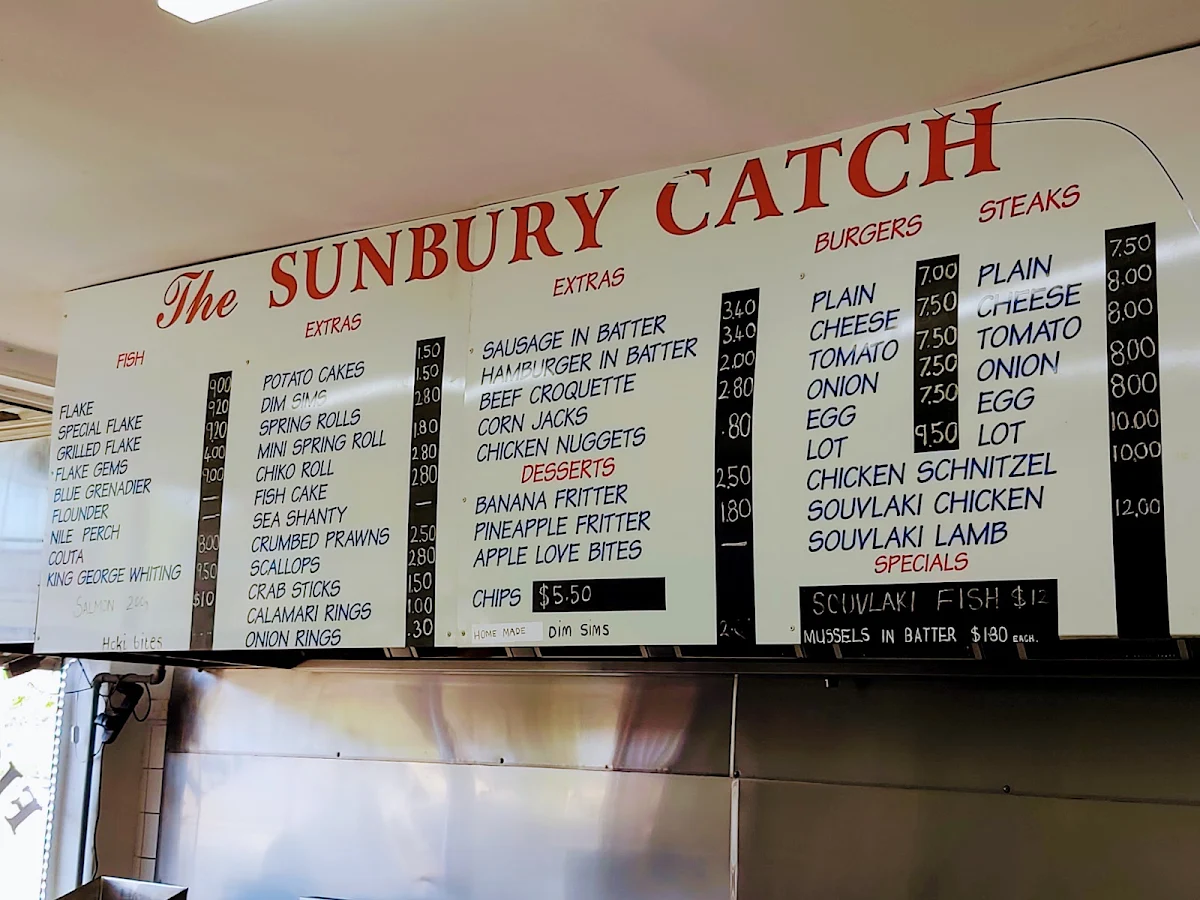 The SUNBURY CATCH
FISH
FLAKE 9.00
SPECIAL FLAKE 9.20
GRILLED FLAKE 9.20
FLAKE GEMS 4.00
BLUE GRENADIER 9.00
FLOUNDER —
NILE PERCH —
COUTA 8.00
KING GEORGE WHITING 9.50
SALMON $10
Hoki bites
EXTRAS
POTATO CAKES 1.50
DIM SIMS 1.50
SPRING ROLLS 2.80
MINI SPRING ROLL 1.80
CHIKO ROLL 2.80
FISH CAKE 2.80
SEA SHANTY —
CRUMBED PRAWNS 2.50
SCALLOPS 2.80
CRAB STICKS 1.50
CALAMARI RINGS 1.00
ONION RINGS .30
EXTRAS
SAUSAGE IN BATTER 3.40
HAMBURGER IN BATTER 3.40
BEEF CROQUETTE 2.00
CORN JACKS 2.80
CHICKEN NUGGETS .80
DESSERTS
BANANA FRITTER 2.50
PINEAPPLE FRITTER 1.80
APPLE LOVE BITES —
CHIPS $5.50
HOME MADE DIM SIMS
BURGERS
PLAIN 7.00
CHEESE 7.50
TOMATO 7.50
ONION 7.50
EGG 7.50
LOT 9.50
STEAKS
PLAIN 7.50
CHEESE 8.00
TOMATO 8.00
ONION 8.00
EGG 8.00
LOT 10.00
CHICKEN SCHNITZEL 10.00
SOUVLAKI CHICKEN
SOUVLAKI LAMB 12.00
SPECIALS
SOUVLAKI FISH $12
MUSSELS IN BATTER $1.80 EACH.